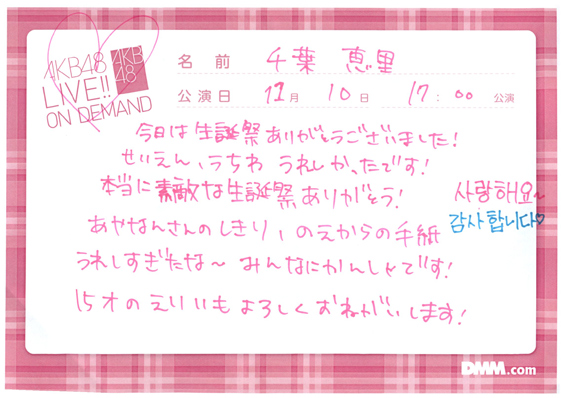 AKB48
LIVE!!
ON DEMAND
AKB
48
名前 千葉 恵里
公演日 11月 10日 17:00 公演
今日は生誕祭ありがとうございました!
せいえん、うちわ うれしかったです!
本当に素敵な生誕祭ありがとう!
사랑해요~
감사합니다♡
あやなんさんのしきり、のえからの手紙
うれしすぎたな〜 みんなにかんしゃです!
15才のえりいもよろしくおねがいします!
DMM.com